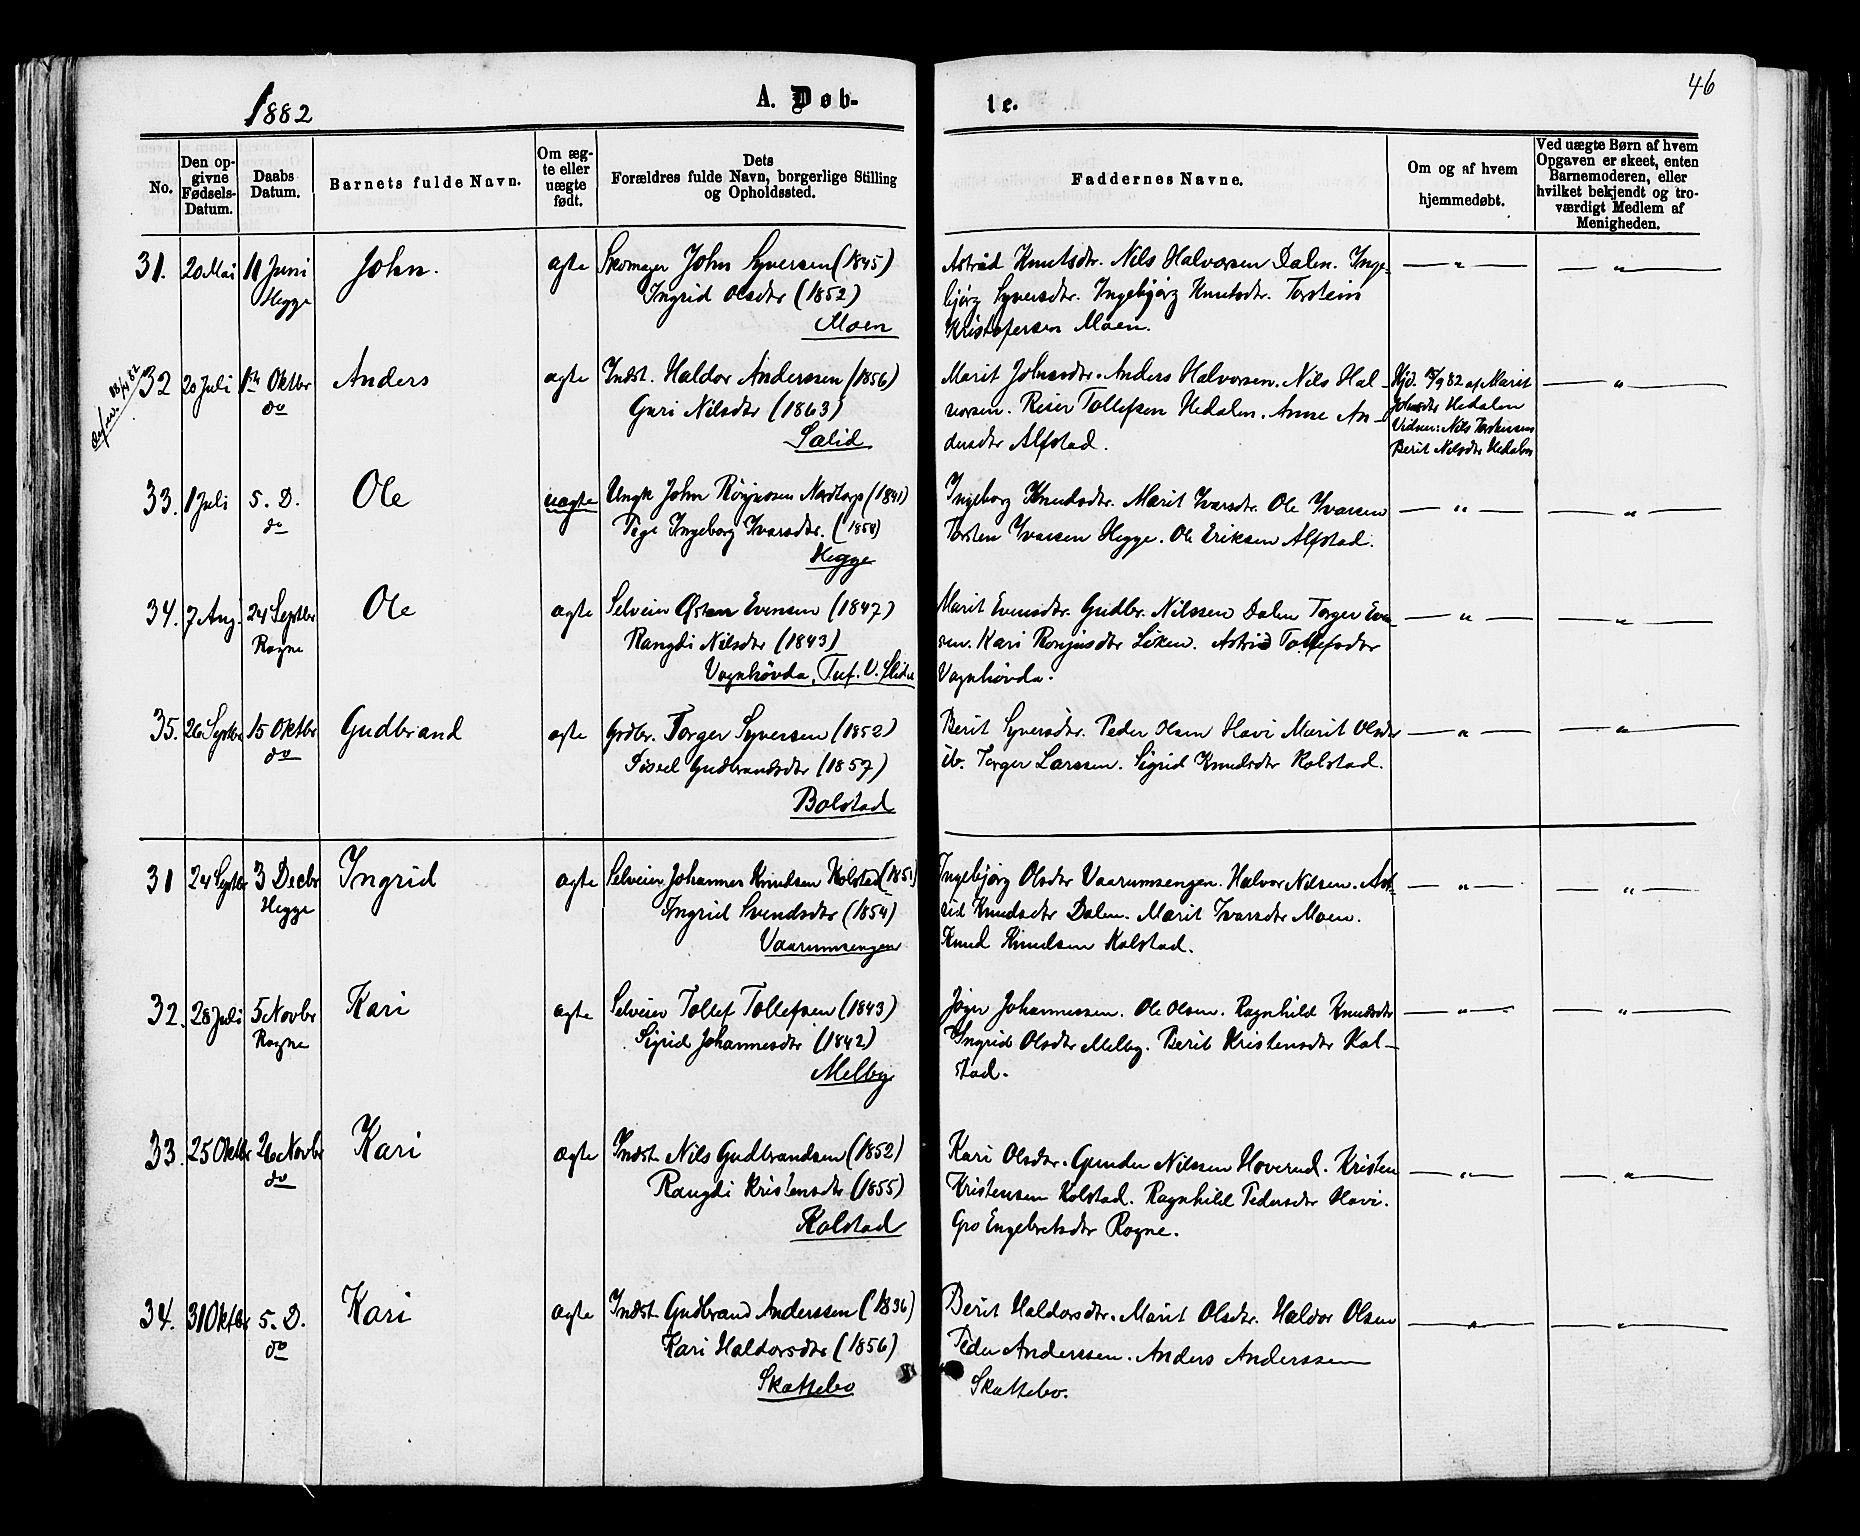 1882
A. Døb-
te.
46
No.
Den op-
givne
Fødsels-
Datum.
Daabs
Datum.
Barnets fulde Navn.
Om æg-
te eller
uægte
født.
Dets
Forældres fulde Navn, borgerlige Stilling
og Opholdssted.
Faddernes Navne.
Om og af hvem
hjemmedøbt.
Ved uægte Børn af hvem
Opgaven er skeet, enten
Barnemoderen, eller
hvilket bekjendt og tro-
værdigt Medlem af
Menigheden.
31. 20 Mai 11 Juni John. ægte Skomager John Syversen (1845) Astrid Knutsdtr. Nils Halvorsen Dalen. Inge-
Hegge Ingrid Olsdtr (1852) bjørg Syversdtr. Ingebjørg Knutsdtr. Torstein
Moen Kristofersen Moen.
32 20 Juli Oktbr Anders ægte Indst. Haldor Anderssen (1856) Marit Johnsdtr. Anders Halvorsen. Nils Hal- Hjd. 15/9 82 af Marit
do Guri Nilsdtr (1863) vorsen. Reier Tollefsen Hedalen. Anne An- Johnsdtr Hedalen
Sælid dersdtr Alfstad. Vidner: Nils Torstensen
Berit Nilsdtr Hedalen
33. 1 Juli 5. D. Ole uægte Ungk John Rognvsen Nordtorp (1841) Ingeborg Knudsdtr. Marit Ivarsdtr. Ole Ivarsen
do Pige Ingeborg Ivarsdtr. (1858) Torsten Ivarsen Hegge. Ole Eriksen Alfstad.
Hegge
34. 7 Aug. 24 Septbr Ole ægte Selveier Østen Evensen (1847) Marit Evensdtr. Gudbr. Nilssen Dalen Torger Even-
Rogne Rangdi Nilsdtr (1843) sen. Kari Rongnsdtr Liken. Astrid Tollefsdtr
Vognhøvda, Tuf. V. Slidre Vognhøvda.
35. 26 Septbr 15 Oktbr Gudbrand ægte Grdbr. Torger Syversen (1852) Berit Syversdtr. Peder Olsen Hovi Marit Olsdtr
do Sissel Gudbrandsdtr (1857) ib. Torger Larssen. Sigrid Knudsdtr Rolstad.
Bolstad
31 24 Septbr 3 Decbr Ingrid ægte Selveier Johannes Knudsen Kolstad (1851) Ingebjørg Olsdtr Vaarumsengen. Halvor Nilsen. Ast-
Hegge Ingrid Svendsdtr (1854) rid Knudsdtr Dalen. Marit Ivarsdtr Moen.
Vaarumsengen Knud Knudsen Kolstad.
32. 28 Juli 5 Novbr Kari ægte Selveier Tollef Tollefsen (1843) Jøgn Johannessen. Ole Olsen. Ragnhild Knudsdtr
Rogne Sigrid Johannesdtr (1842) Ingrid Olsdtr Melby. Berit Kristensdtr Kol-
Melby stad.
33. 25 Oktbr 26 Novbr Kari ægte Indst. Nils Gudbrandsen (1852) Kari Olsdtr. Gunder Nilssen Hoverud. Kristen
do Rangdi Kristensdtr (1855) Kristensen Kolstad. Ragnhild Pedersdtr Hovi.
Kolstad Gro Engebretsdtr Rogne.
34. 31 Oktbr 5. D. Kari ægte Indst. Gudbrand Anderssen (1836) Berit Haldorsdtr. Marit Olsdtr. Haldor Olsen
do Kari Haldorsdtr (1856) Peder Anderssen. Anders Anderssen
Skattebo Skattebo.